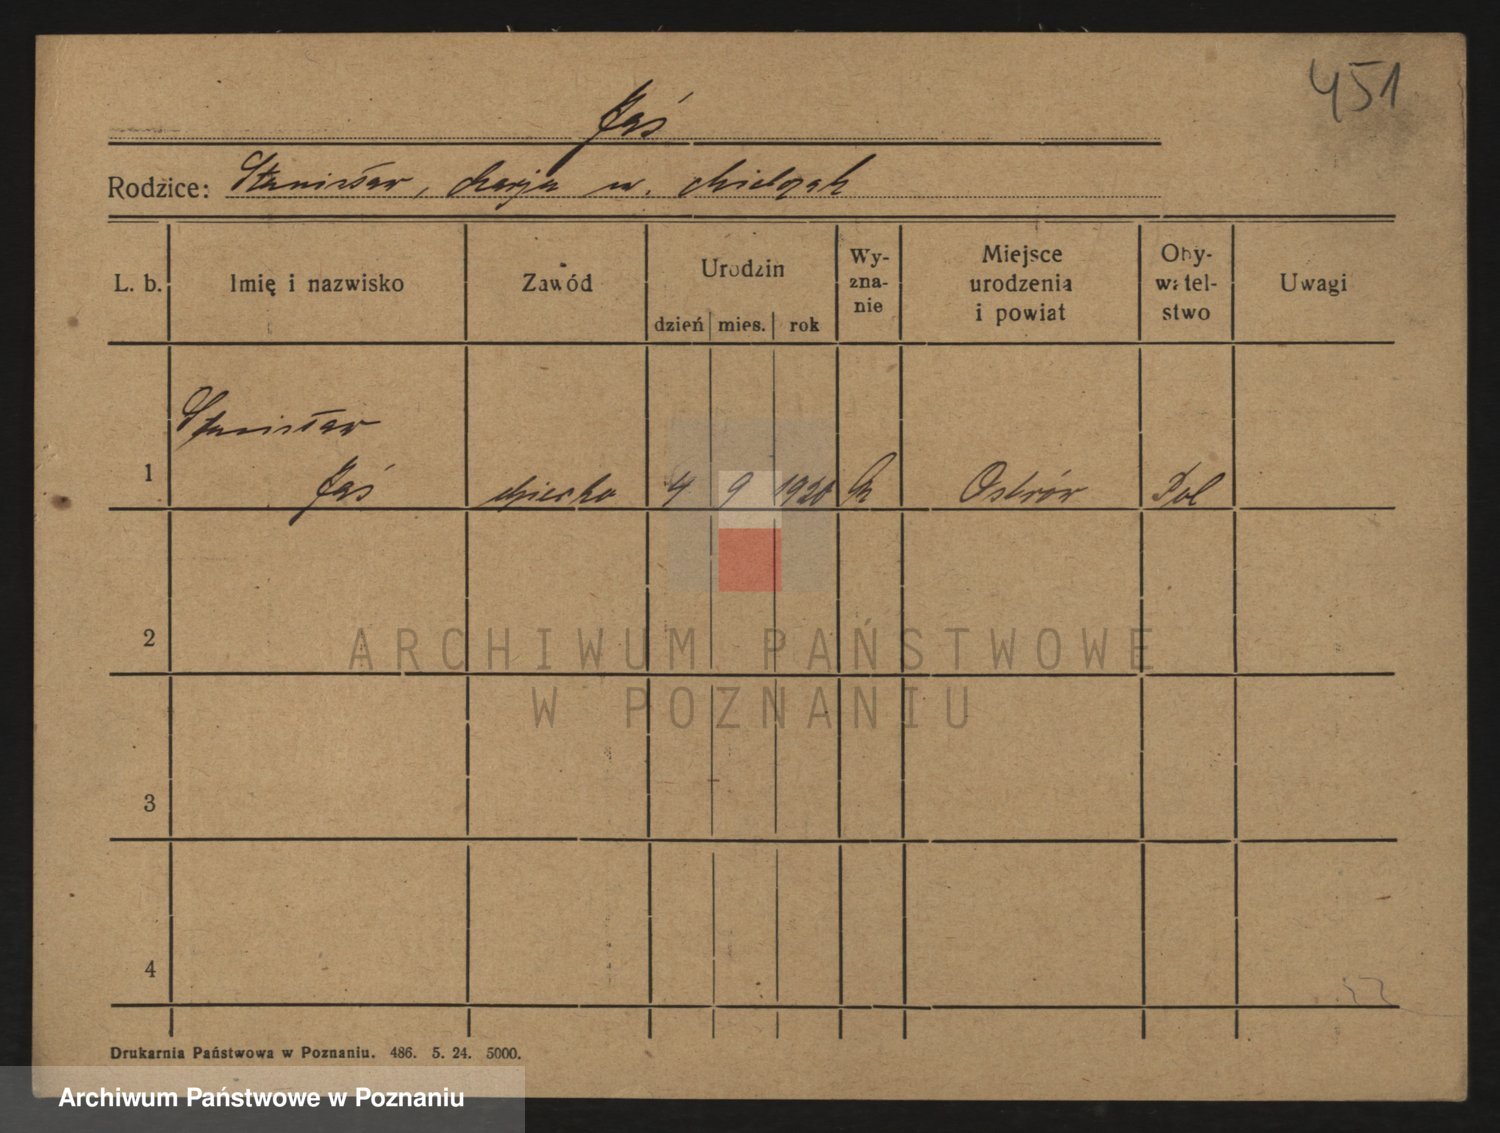 451
Jaś
Rodzice: Stanisław, Marja u. Mielczak
L. b. Imię i nazwisko Zawód Urodzin dzień mies. rok Wy-zna-nie Miejsce urodzenia i powiat Oby-watel-stwo Uwagi
Stanisław
1 Jaś dziecko 4 9 1920 k Ostrów Pol
2
3
4
ARCHIWUM PAŃSTWOWE
W POZNANIU
Drukarnia Państwowa w Poznaniu. 486. 5. 24. 5000.
Archiwum Państwowe w Poznaniu